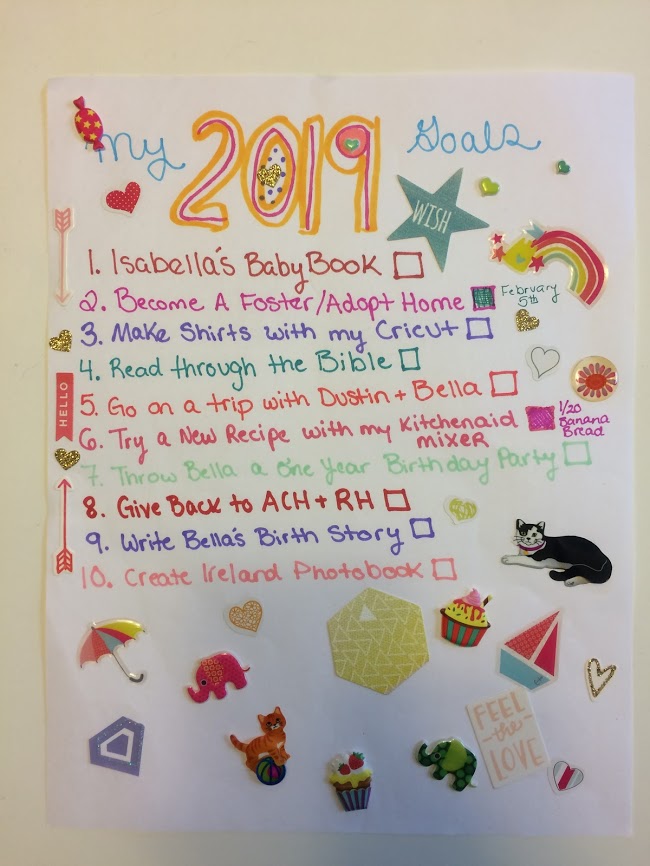 My 2019 Goals
WISH
1. Isabella's Baby Book
2. Become A Foster/Adopt Home
February
5th
3. Make Shirts with my Cricut
4. Read through the Bible
HELLO
5. Go on a trip with Dustin + Bella
6. Try a New Recipe with my Kitchenaid
mixer
1/20
Banana
Bread
7. Throw Bella a One Year Birthday Party
8. Give Back to ACH + RH
9. Write Bella's Birth Story
10. Create Ireland Photobook
FEEL
the
LOVE